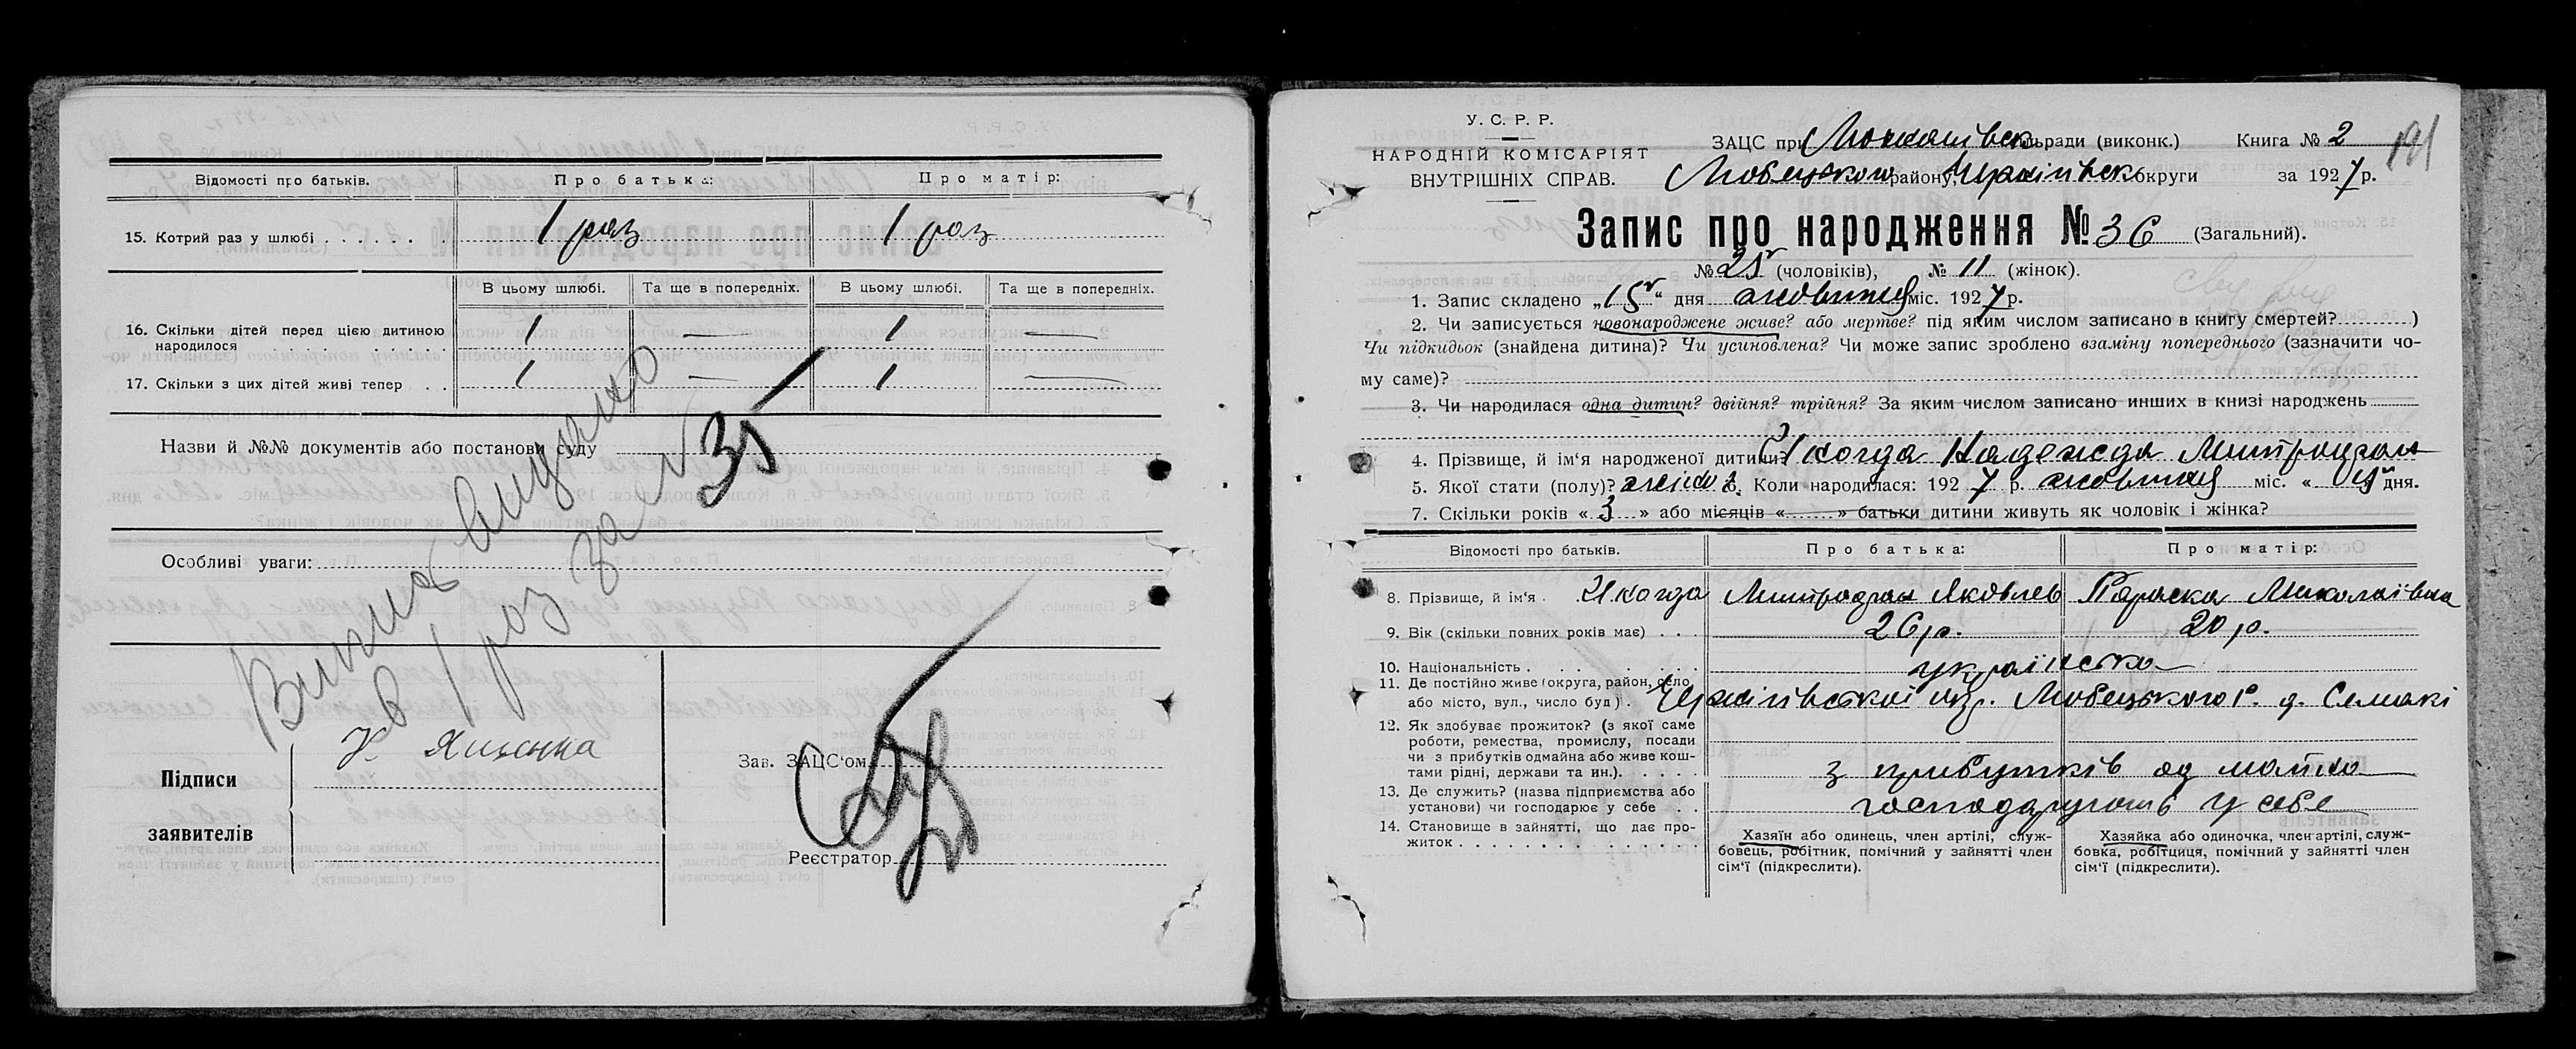 Відомості про батьків.
Про батька:
Про матір:
15. Котрий раз у шлюбі
1 раз
1 раз
В цьому шлюбі.
Та ще в попередніх.
В цьому шлюбі.
Та ще в попередніх.
16. Скільки дітей перед цією дитиною
народилося
1
—
1
—
17. Скільки з цих дітей живі тепер
1
—
1
—
Назви й №№ документів або постанови суду
Особливі уваги:
1 раз за № 35
Підписи
заявителів
К. Ященка
Зав. ЗАЦС'ом
Реєстратор
У. С. Р. Р.
НАРОДНІЙ КОМІСАРІЯТ
ВНУТРІШНІХ СПРАВ.
ЗАЦС при ради (виконк.)
Книга № 2
Любецького району, Чернігівськ округи
за 1927 р.
Запис про народження № 36 (Загальний).
№ 25 (чоловіків), № 11 (жінок).
1. Запис складено „15“ дня жовтня міс. 1927 р.
2. Чи записується новонароджене живе? або мертве? під яким числом записано в книгу смертей? )
Чи підкидьок (знайдена дитина)? Чи усиновлена? Чи може запис зроблено взаміну попереднього (зазначити чо-
му саме)?
3. Чи народилася одна дитин? двійня? трійня? За яким числом записано инших в книзі народжень
4. Прізвище, й ім'я народженої дитини? Надежда Митрофан
5. Якої стати (полу)? жіно 6. Коли народилася: 1927 р. жовтня міс. « » дня.
7. Скільки років « 3 » або місяців « » батьки дитини живуть як чоловік і жінка?
Відомості про батьків.
Про батька:
Про матір:
8. Прізвище, й ім'я
Митрофан Яковлев
Параска Миколаївна
9. Вік (скільки повних років має)
26 р.
20 р.
10. Національність
українська
11. Де постійно живе (округа, район, село
або місто, вул., число буд)
Чернігівської окр. Любецького р. д. Семаки
12. Як здобуває прожиток? (з якої саме
роботи, ремества, промислу, посади
чи з прибутків одмайна або живе кош-
тами рідні, держави та ин.).
з прибутків од майна
13. Де служить? (назва підприємства або
установи) чи господарює у себе
господарують у себе
14. Становище в зайнятті, що дає про-
житок
Хазяїн або одинець, член артілі, служ-
бовець, робітник, помічний у зайнятті член
сім'ї (підкреслити).
Хазяйка або одиночка, член артілі, служ-
бовка, робітниця, помічний у зайнятті член
сім'ї (підкреслити).